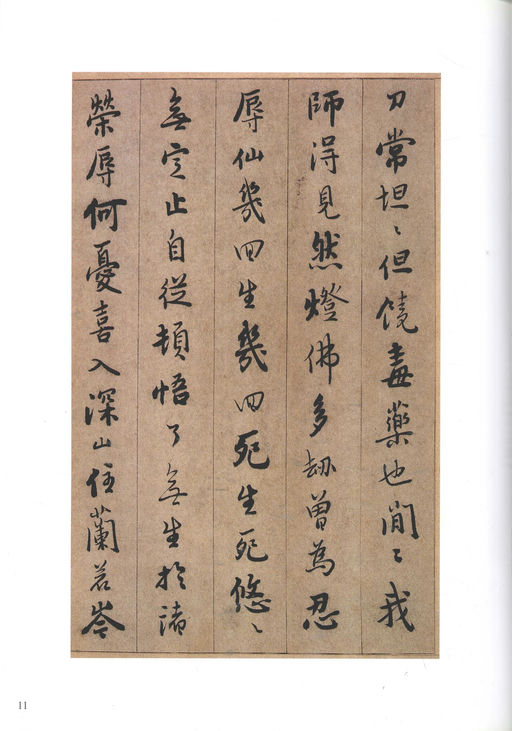 刀常坦〻但饒毒藥也閒〻我
師得見然燈佛多劫曽為忍
辱仙幾回生幾回死生死悠〻
無定止自従頓悟了無生於諸
榮辱何憂喜入深山住蘭若岑
11